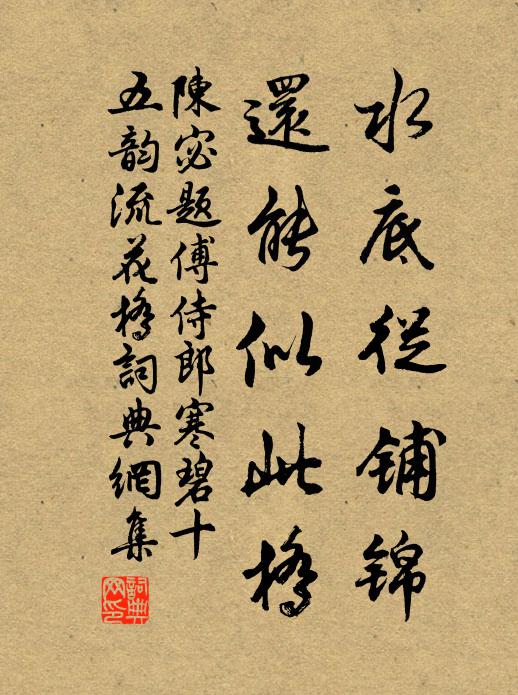 水底從鋪錦
還能似此橋
陳宓題傅侍郎寒碧十
五韵流花橋詞典網集
詞典网印